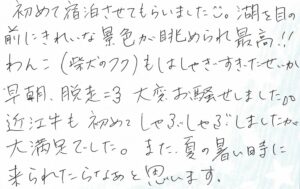 初めて宿泊させてもらいました。湖を目の
前にきれいな景色が眺められ最高!!
わんこ(柴犬のクク)もはしゃぎすぎたせいか
早朝、脱走 大変お騒せしました。
近江牛も初めてしゃぶしゃぶしましたが
大満足でした。また、夏の暑い時に
来られたらなあと思います。